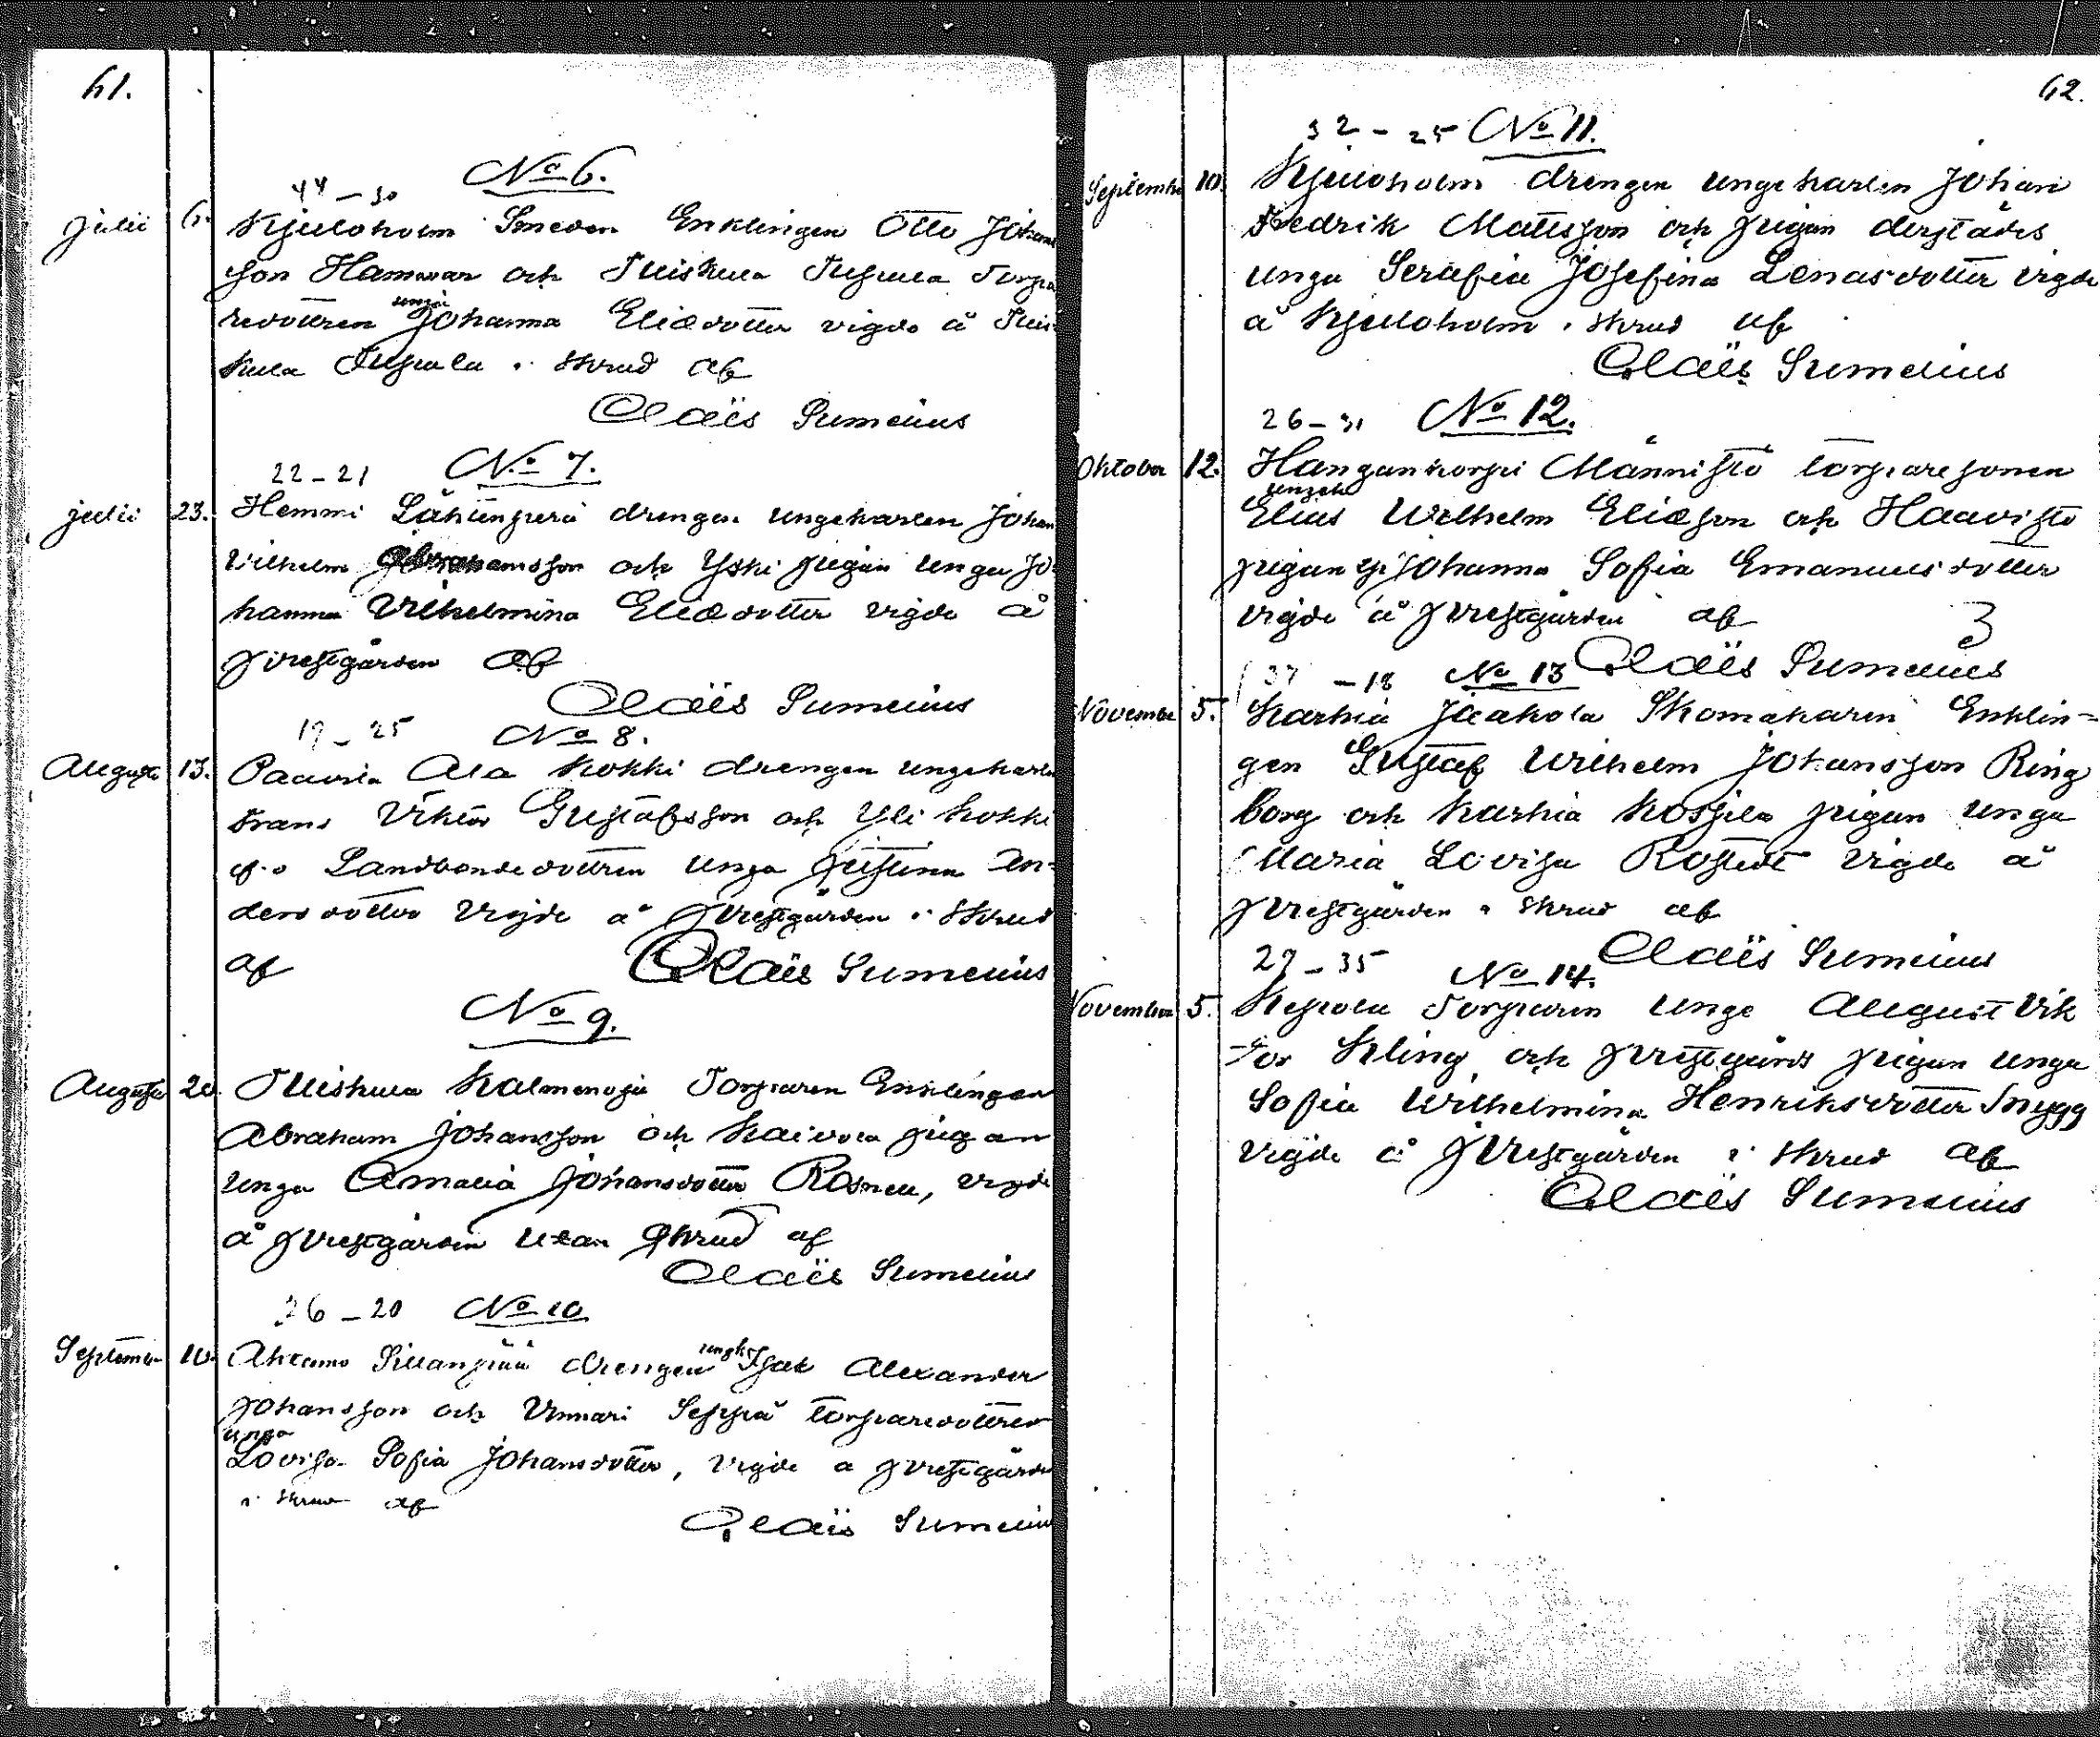 61.
No 6.
44 - 30
Julii 6. Kjuloholm Smeden Enklingen Otto Johans
son Hammar och Tuiskula Tupala Torpa
unga
redottren Johanna Eliædotter vigde å Tuis
kula Tupala i skrud af
Claës Sumelius
22 - 21 No 7.
Julii 23. Hemmi Lähtenperä drengen ungekarlen Johan
Vilhelm Abrahamsson och Yski pigan unga Jo
hanna Vilhelmina Eliædotter vigde å
prestgården af
Claës Sumelius
19 - 25 No 8.
Augusti 13. Paavila Ala Kokki drengen ungekarlen
Frans Viktor Gustafsson och Yli Kokki
Landbondedottren unga Justina An-
dersdotter vigde å prestgården i skrud
af Claës Sumelius
No 9.
Augusti 20. Tuiskula Kalmenoja Torparen Enklingen
Abraham Johansson och Kaivola pigan
unga Amalia Johansdotter Rosnell, vigde
å prestgården utan skrud af
Claës Sumelius
26 - 20 No 10
September 10. Ahtamo Sillanpää drengen ungk. Isak Alexander
Johansson och Vinnari Seppä torparedottren
unga
Lovisa Sofia Johansdotter, vigde å prestgården
i skrud af
Claës Sumelius
62.
32 - 25 No 11.
September 10. Kjuloholm drengen ungekarlen Johan
Fredrik Mattsson och pigan derstädes
unga Serafia Josefina Lenasdotter vigde
å Kjuloholm i skrud af
Claës Sumelius
26 - 31 No 12.
Oktober 12. Hangankorpi Männistö torparesonen
ungek.
Elias Wilhelm Eliæson och Haavisto
pigan Johanna Sofia Emanuelsdotter
vigde å prestgården af
Claës Sumelius
37 - 18 No 13
November 5. Karhia Jaakola Skomakaren Enklin-
gen Gustaf Wilhelm Johansson Ring
borg och Karhia Kossila pigan unga
Maria Lovisa Rostedt vigde å
prestgården i skrud af
Claës Sumelius
27 - 35 No 14.
November 5. Kepola Torparen unge August Vik
tor Kling och prestgårds pigan unga
Sofia Wilhelmina Henriksdotter Snygg
vigde å prestgården i skrud af
Claës Sumelius